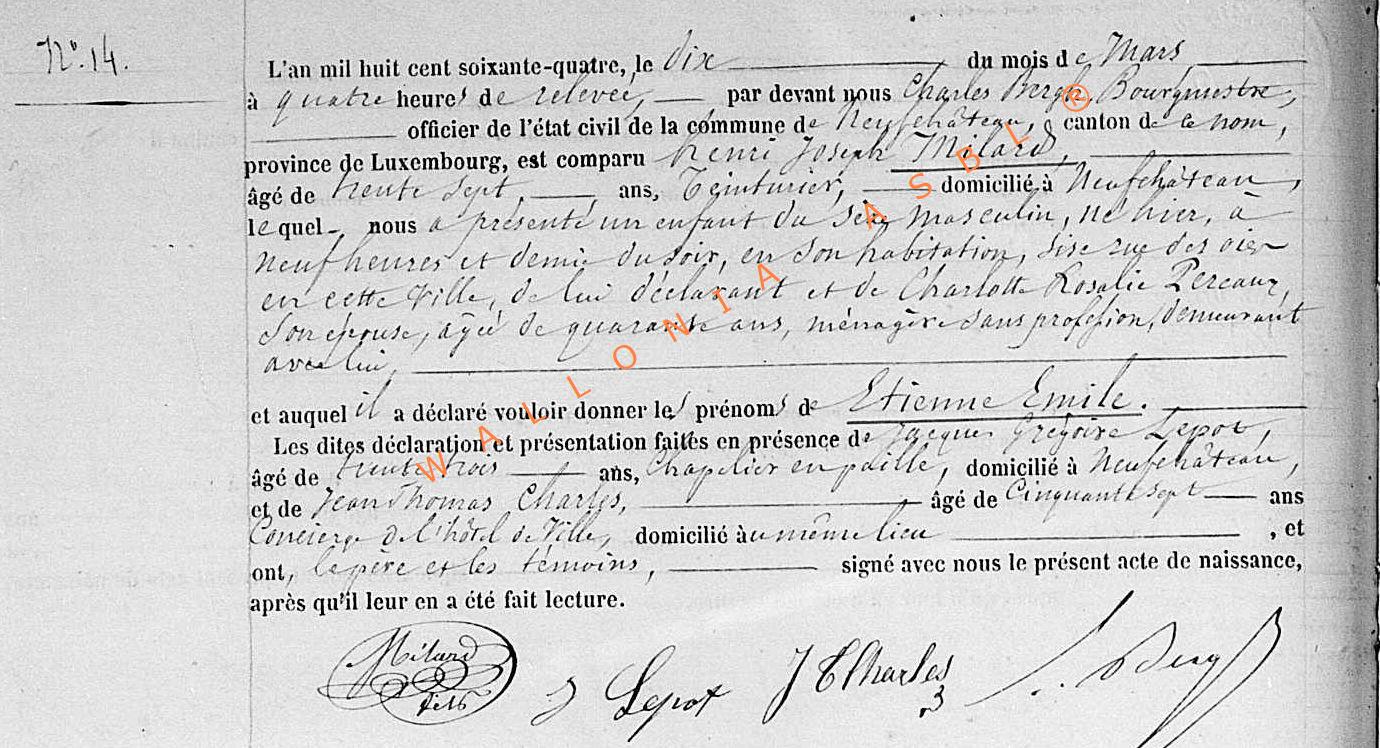 N°. 14.
L'an mil huit cent soixante-quatre, le dix du mois de Mars
à quatre heures de relevée, par devant nous Charles Bergh, Bourgmestre,
officier de l'état civil de la commune de Neufchâteau, canton de ce nom,
province de Luxembourg, est comparu Henri Joseph Milard,
âgé de trente sept, ans, Teinturier, domicilié à Neufchâteau,
lequel, nous a présenté un enfant du sexe masculin, né hier, à
neuf heures et demie du soir, en son habitation, sise rue des
en cette Ville, de lui déclarant et de Charlotte Rosalie Perçaux,
son épouse, âgée de quarante ans, ménagère sans profession, demeurant
avec lui,
et auquel il a déclaré vouloir donner les prénoms de Etienne Emile.
Les dites déclaration et présentation faites en présence de Jacques Grégoire Lepot,
âgé de trente trois ans, Chapelier en paille, domicilié à Neufchâteau,
et de Jean Thomas Charles, âgé de Cinquante sept ans
Concierge de l'hôtel de Ville, domicilié au même lieu, et
ont, le père et les témoins, signé avec nous le présent acte de naissance,
après qu'il leur en a été fait lecture.
Milard
J Lepot
J T Charles
Bergh
WALLONIA ASBL ®